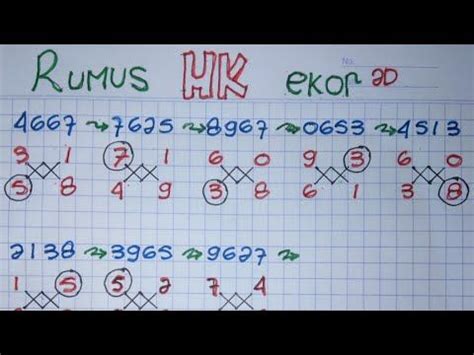 No.
RUMUS HK ekor 2D
4667 ⤳ 7625 ⤳ 8967 ⤳ 0653 ⤳ 4513
9 1 7 1 6 0 9 3 6 0
5 8 4 9 3 8 6 1 3 8
2138 ⤳ 3965 ⤳ 9627 ⤳
1 5 5 2 7 4